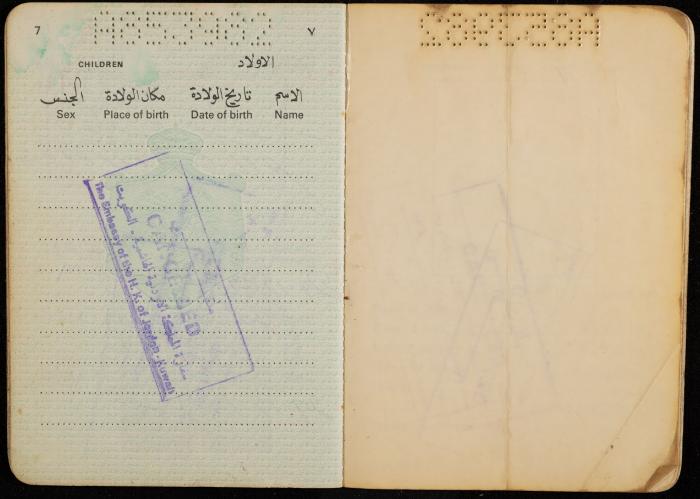 7 ٧
CHILDREN الاولاد
الجنس مكان الولادة تاريخ الولادة الاسم
Sex Place of birth Date of birth Name
CANCELLED
سفارة المملكة الاردنية الهاشمية - الكويت
The Embassy of the H. K. of Jordan - Kuwait